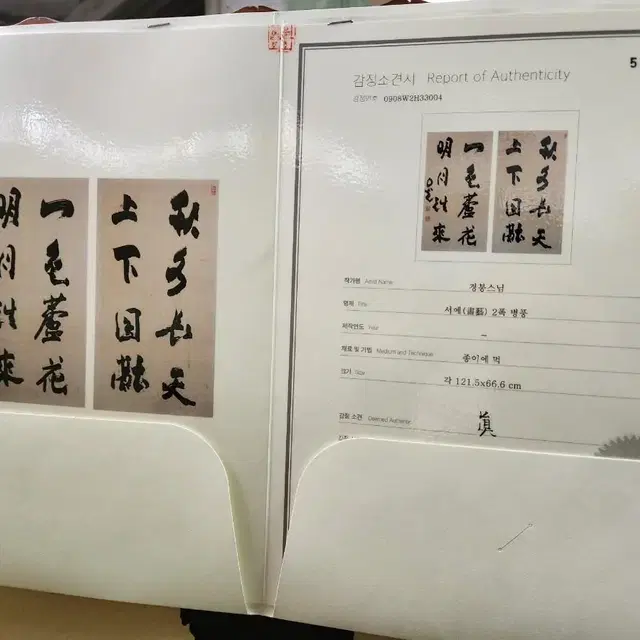 秋水長天
上下圓融
一色蘆花
明月往來
5
감정소견서 Report of Authenticity
감정번호 0908W2H33004
秋水長天
上下圓融
一色蘆花
明月往來
작가명 Artist Name 경봉스님
명제 Title 서예(書藝) 2폭 병풍
제작연도 Year –
재료 및 기법 Medium and Technique 종이에 먹
크기 Size 각 121.5x66.6 cm
감정 소견 Deemed Authenticity 眞